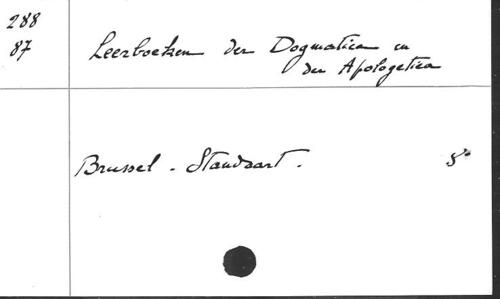 288
87
Leerboeken der Dogmatica en
der Apologetica
Brussel - Standaart. 8°